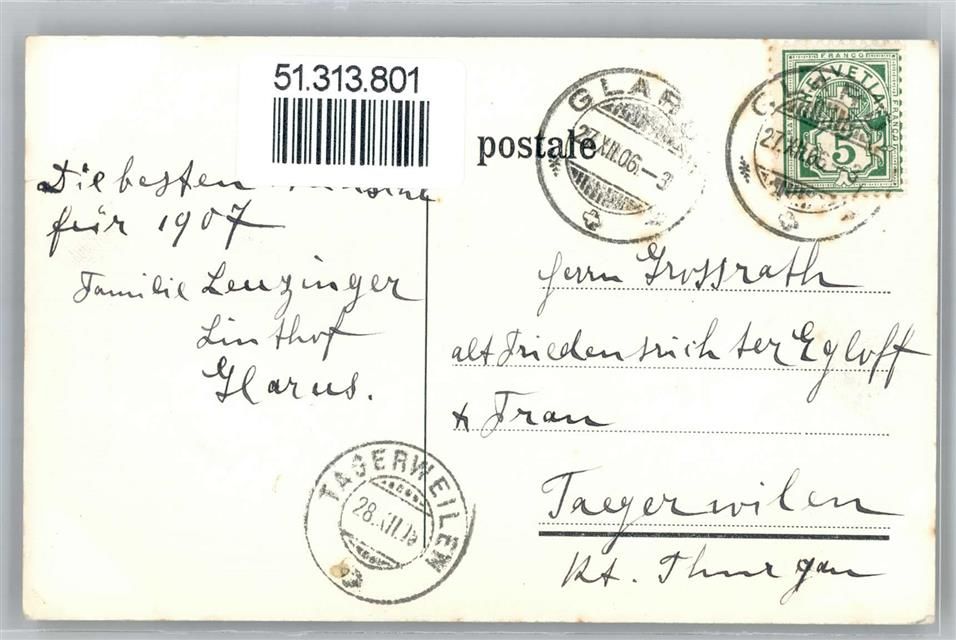 51.313.801
postale
GLARUS
27.XII.06.-3
27.XII.06.-3
FRANCO
HELVETIA
FRANCO
FRANCO
5
Die besten
für 1907
Familie Leuzinger
Linthof
Glarus.
Herrn Grossrath
alt Friedensrichter Egloff
& Frau
Taegerwilen
Kt. Thurgau
TAGERWEILEN
28.XII.06